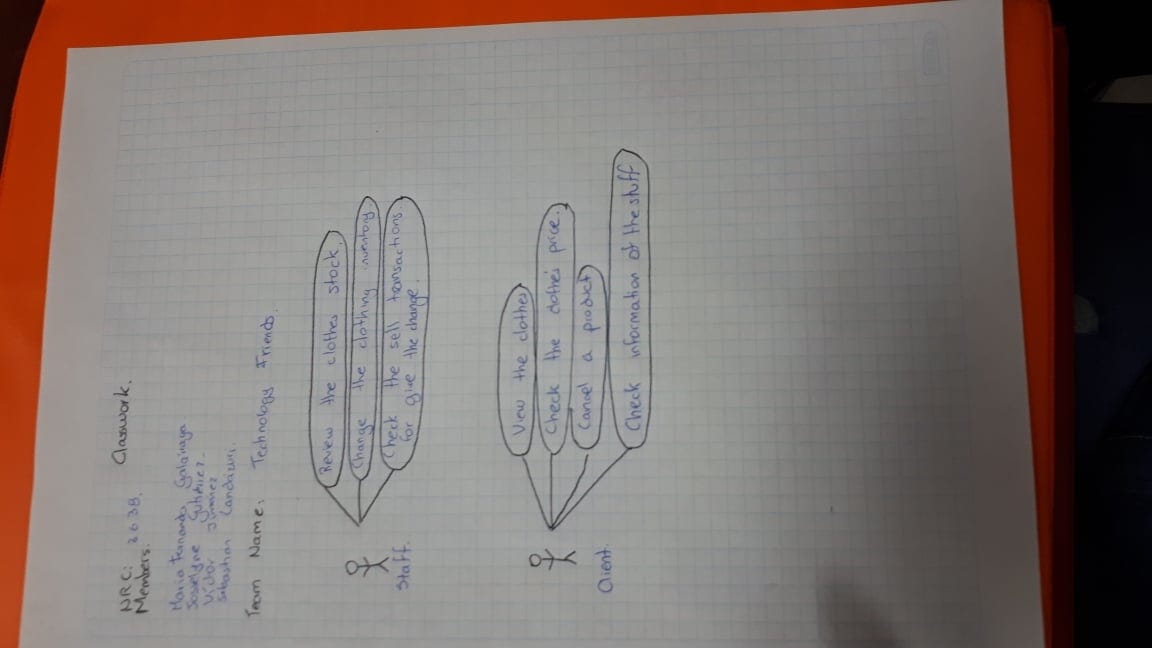 NRC: 2638. Classwork.
Members:
Maria Fernanda
Josselyne Gutiérrez.
Victor Jimenez
Sebastian
Team Name: Technology Friends.
Review the clothes stock.
Change the clothing inventory.
Check the sell transactions.
for give the change.
Staff.
View the clothes
Check the clothes price.
Cancel a product
Check information of the stuff
Client.